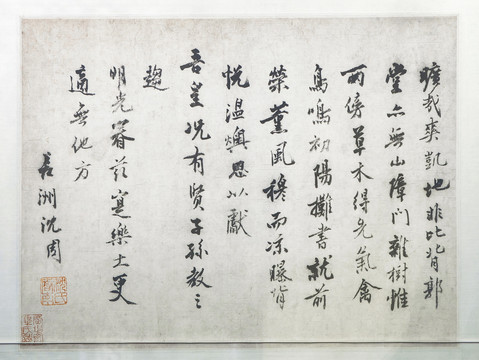 曠哉爽凱地非比背郭
堂亦無山障門雜樹惟
兩傍草木得先氣禽
鳥鳴初陽攤書就前
榮薰風穆而凉曝背
悦温燠思以獻
吾皇況有賢子孫教之
趨
明光眷兹寔樂土更
適無他方
長洲沈周